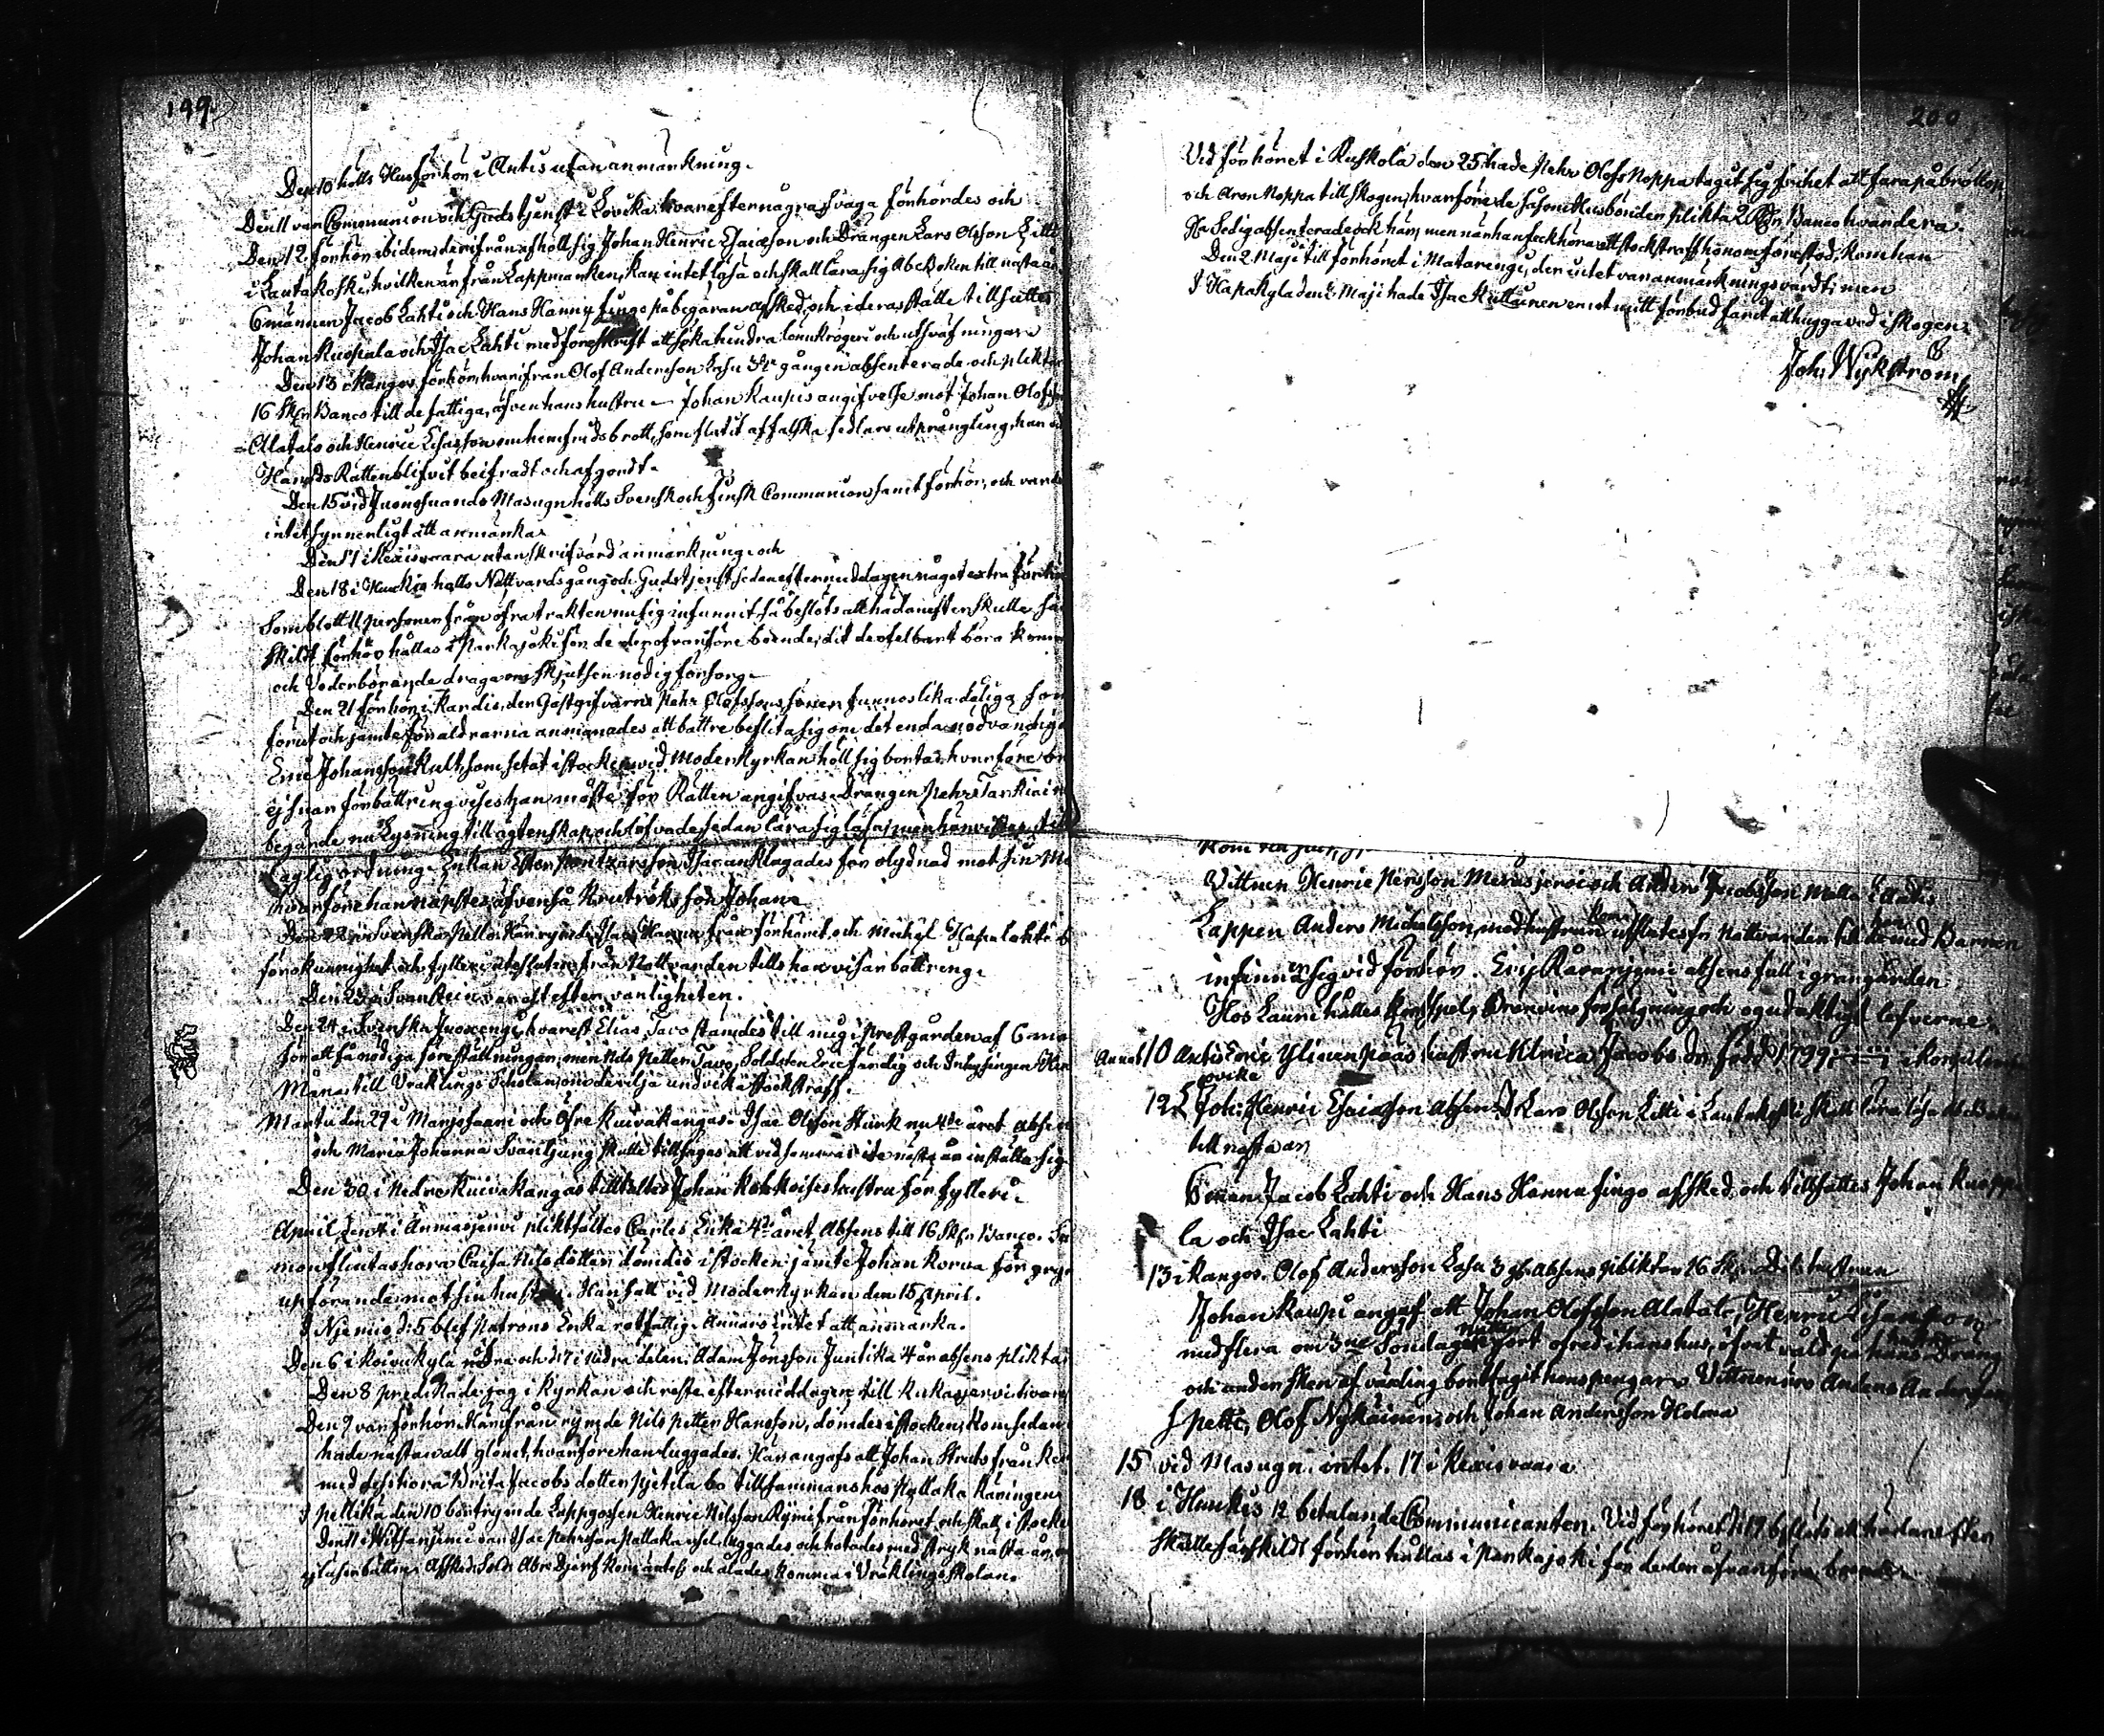 199.
Den 10 hölls Husförhör i Antis utan anmärkning.
Den 11 var Communion och Gudstjenst i Lovika hvarefter några svaga förhördes och
Den 12 förhör ibidem, derifrån afhöll sig Johan Henric Esaiæson och Drängen Lars Olsson Litti
i Lautakoski, hvilken är från Lappmarken, kan intet läsa och skall lära sig Abc Boken till nästa år
6männen Jacob Lahti och Hans Hannu fingo på begäran afsked, och i deras ställe tillsattes
Johan Kuoppala och Isac Lahti med föreskrift att söka hindra lönnkrögeri och utsväfningar
Den 13 i Kangos förhör, hvarifrån Olof Andersson Lasu 3dje gången absenterade och pliktar
16 Sk. Banco till de fattiga, äfven hans hustru - Johan Kaupis angifvelse mot Johan Olofsson
Alatalo och Henric Esaiasson om hemfridsbrott, som slutit af falska sedlars utprångling, har
Härads Rätten blifvit beifradt och afgjordt.
Den 15 vid Junosuando Masugn hölls Svensk och Finsk Communion samt förhör, och var
intet synnerligt att anmärka.
Den 17 i Kexisvaara utan skrifvärd anmärkning, och
Den 18 i Huukis hölls Nattvardsgång och Gudstjenst, sedan eftermiddagen något extra förhör
Som blott 11 personer från öfra trakten nu sig infunnit, så beslöts att hädanefter skulle sär
skildt förhör hållas i Parkajoki för de der ofvanföre boende, dit de ofelbart böra komma
och Vederbörande draga om skjutsen nödig försorg.
Den 21 förhör i Kardis, den Gästgifvaren Pehr Olofssons söner funnos lika dåliga som
förut och jämte föräldrarna anmanades att bättre beflita sig om det enda nödvändiga
Eric Johansson Kult, som setat i stocken vid Moderkyrkan höll sig borta, hvarföre om
ej snar förbättring vises han måste för Rätten angifvas. Drängen Pehr Tarkiain
begärde nu Lysning till ägtenskap, och lofvade sedan lära sig läsa, men hänvistes till
laglig ordning. Enkan son Isac anklagades för olydnad mot sin Mo
hvarföre han näpstes, äfvenså Krutröks son Johan.
Den 22 i Svenska Pello. Här rymde Isac Hannu från förhöret, och Michel Hapalahti
för okunnighet och fylleri uteslutes från Nattvarden tills han visar bättring.
Den 23 i Svanstein var allt efter vanligheten.
Den 24 i Svenska Juoxengi, hvarest Elias Tavo stämdes till mig i prestgården af 6man
för att få nödiga föreställningar, men Nils Petter Tavo, Soldaten Eric Färdig och Inhysingen
Måna till Vräklings Scholan, om de vilja undvika stockstraff.
Martii den 29 i Marjosaari och Öfre Kuivakangas. Isac Olsson Stark nu 4de året absens
och Maria Johanna Svanljung skulle tillsägas att vid samma nästa år inställa sig.
Den 30 i Nedra Kuivakangas tilltaltes Johan Kohkoises hustru för fylleri.
April den 4 i Armasjervi pliktfältes Carles Enka 4de året Absens till 16 Sk. Banco.
mors hora Caisa Nilsdotter dömdes i stocken jämte Johan Korva för
upförande mot sin hustru. Han satt vid Moderkyrkan den 15 April.
I Njemis d: 5 blef Patrons Enka rotfattig. Annars intet att anmärka.
Den 6 i Koivukylä nedra och d: 7 i södra delen. Adam Jönsson Juntika 4 år absens pliktar
Den 8 predikade jag i kyrkan och reste eftermiddagen till Kukasjervi hvar
Den 9 var förhör. Härifrån rymde Nils Petter Hansson, dömdes i stocken, kom sedan
hade nästan allt glömt, hvarföre han luggades. Här angafs att Johan Struts från
med des hora Brita Jacobs dotter Pietilä bo tillsammans hos Pallaka Käringen
I Pellika den 10 bortrymde Lappgossen Henric Nilsson Rymi från förhöret och skall i stocken
Den 11 i Wittsanjemi var Isac Pehrsson Pallaka usel, luggades och hotades med stryk nästa år, om
ej läser bättre. Afsked. Sold. Abr. Djerf kom äntel. och ålades komma i Vräklingsskolan.
200
Vid förhöret i Ruskola den 25 hade Pehr Olofs Noppa tagit sig frihet att fara på bröllop,
och Aron Noppa till skogen, hvarföre de såsom Husbönder plikta 2 Rdr Banco hvardera.
Sedig absenterade ock här, men när han feck höra att stockstraff honom förestod, kom han
Den 2 Maji till förhöret i Matarengi, der intet var anmärkningsvärdt, men
I Hapakylä den 3 Maji hade Isac Kuttainen emot mitt förbud farit att hugga ved i skogen.
Joh. Wykström
Vittnen Henric Persson Merasjervi och Anders Jacobsson Matti i Antis.
Lappen Anders Michelsson med hustrun uteslutes fr. Nattvarden till de med Barnen
infinna sig vid förhör. Eric absens full i grangården.
Hos Lauri hålles Kortspel, Brännvins försäljning och ogudaktigt lefverne.
10 Antis Eric Ylinenpääs hustru Ulrica Jacobs dr. född 1799
12 Lovika Joh: Henric Esaiasson Absens. Lars Olsson Litti i Lautakoski skall lära läsa Abc Boken
till nästa år
6män Jacob Lahti och Hans Hannu fingo afsked och tillsattes Johan Kuoppa
la och Isac Lahti
13 i Kangos. Olof Andersson Lasu 3 g. absens pliktar 16 Sk. Dito hustrun
Johan Kaupi angaf att Johan Olofsson Alatalo, Henric Esaiasson
med flera om 3ne Söndagsnätter fört ofred i hans hus, öfvat våld på hans Dräng
och under sken af växling borttagit hans pengar. Vittnen äro Anders Andersson
Spett, Olof Nykäinen och Johan Andersson Holma
15 vid Masugn. intet. 17 i Kexisvaara
18 i Huukis 12 betalande Communicanter. Vid förhöret d 19 beslöts att hädanefter
skulle särskildt förhör hållas i Parkajoki för de der ofvanföre boende